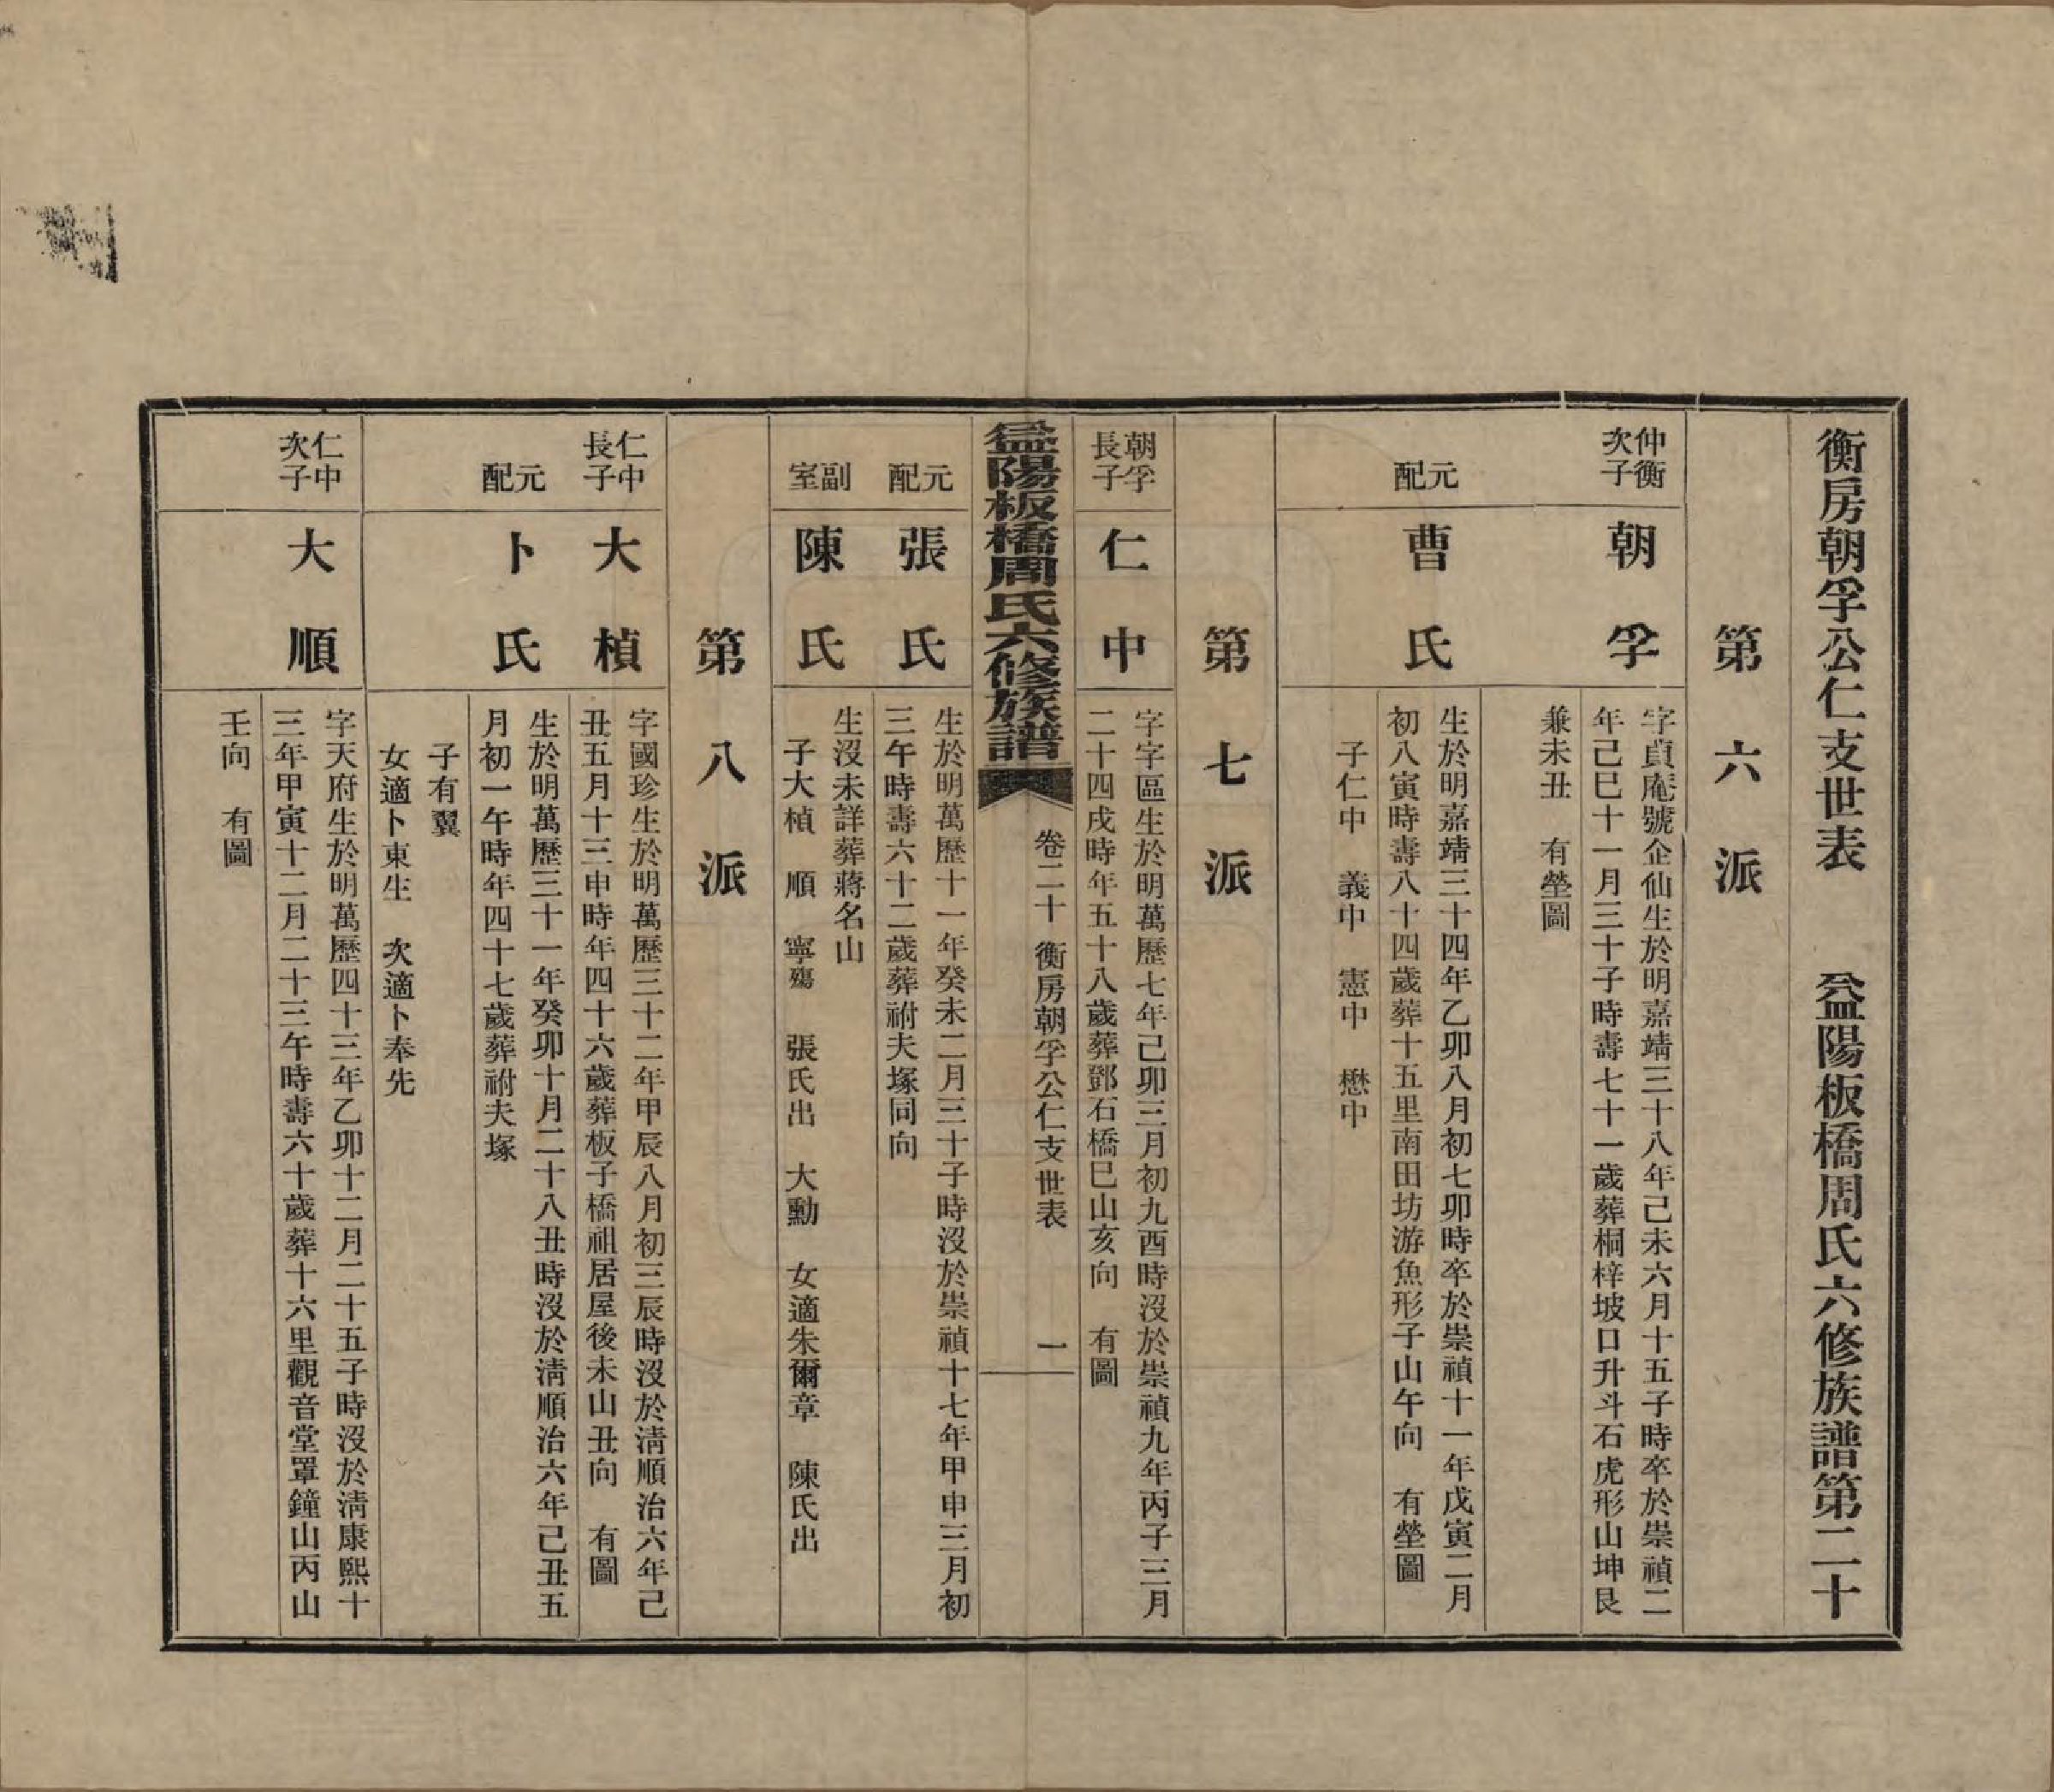 衡房朝孚公仁支世表　益陽板橋周氏六修族譜第二十
第六派
仲衡
次子
朝孚
字貞庵號企仙生於明嘉靖三十八年己未六月十五子時卒於崇禎二
年己巳十一月三十子時壽七十一歲葬桐梓坡口升斗石虎形山坤艮
兼未丑　有塋圖
元配
曹氏
生於明嘉靖三十四年乙卯八月初七卯時卒於崇禎十一年戊寅二月
初八寅時壽八十四歲葬十五里南田坊游魚形子山午向　有塋圖
子仁中　義中　憲中　懋中
第七派
朝孚
長子
仁中
字字區生於明萬歷七年己卯三月初九酉時沒於崇禎九年丙子三月
二十四戌時年五十八歲葬鄧石橋巳山亥向　有圖
益陽板橋周氏六修族譜
卷二十　衡房朝孚公仁支世表　一
元配
張氏
生於明萬歷十一年癸未二月三十子時沒於崇禎十七年甲申三月初
三午時壽六十二歲葬祔夫塚同向
副室
陳氏
生沒未詳葬蔣名山
子大楨　順　寧殤　張氏出　大勳　女適朱爾章　陳氏出
第八派
仁中
長子
大楨
字國珍生於明萬歷三十二年甲辰八月初三辰時沒於淸順治六年己
丑五月十三申時年四十六歲葬板子橋祖居屋後未山丑向　有圖
元配
卜氏
生於明萬歷三十一年癸卯十月二十八丑時沒於淸順治六年己丑五
月初一午時年四十七歲葬祔夫塚
子有翼
女適卜東生　次適卜奉先
仁中
次子
大順
字天府生於明萬歷四十三年乙卯十二月二十五子時沒於淸康熙十
三年甲寅十二月二十三午時壽六十歲葬十六里觀音堂罩鐘山丙山
壬向　有圖